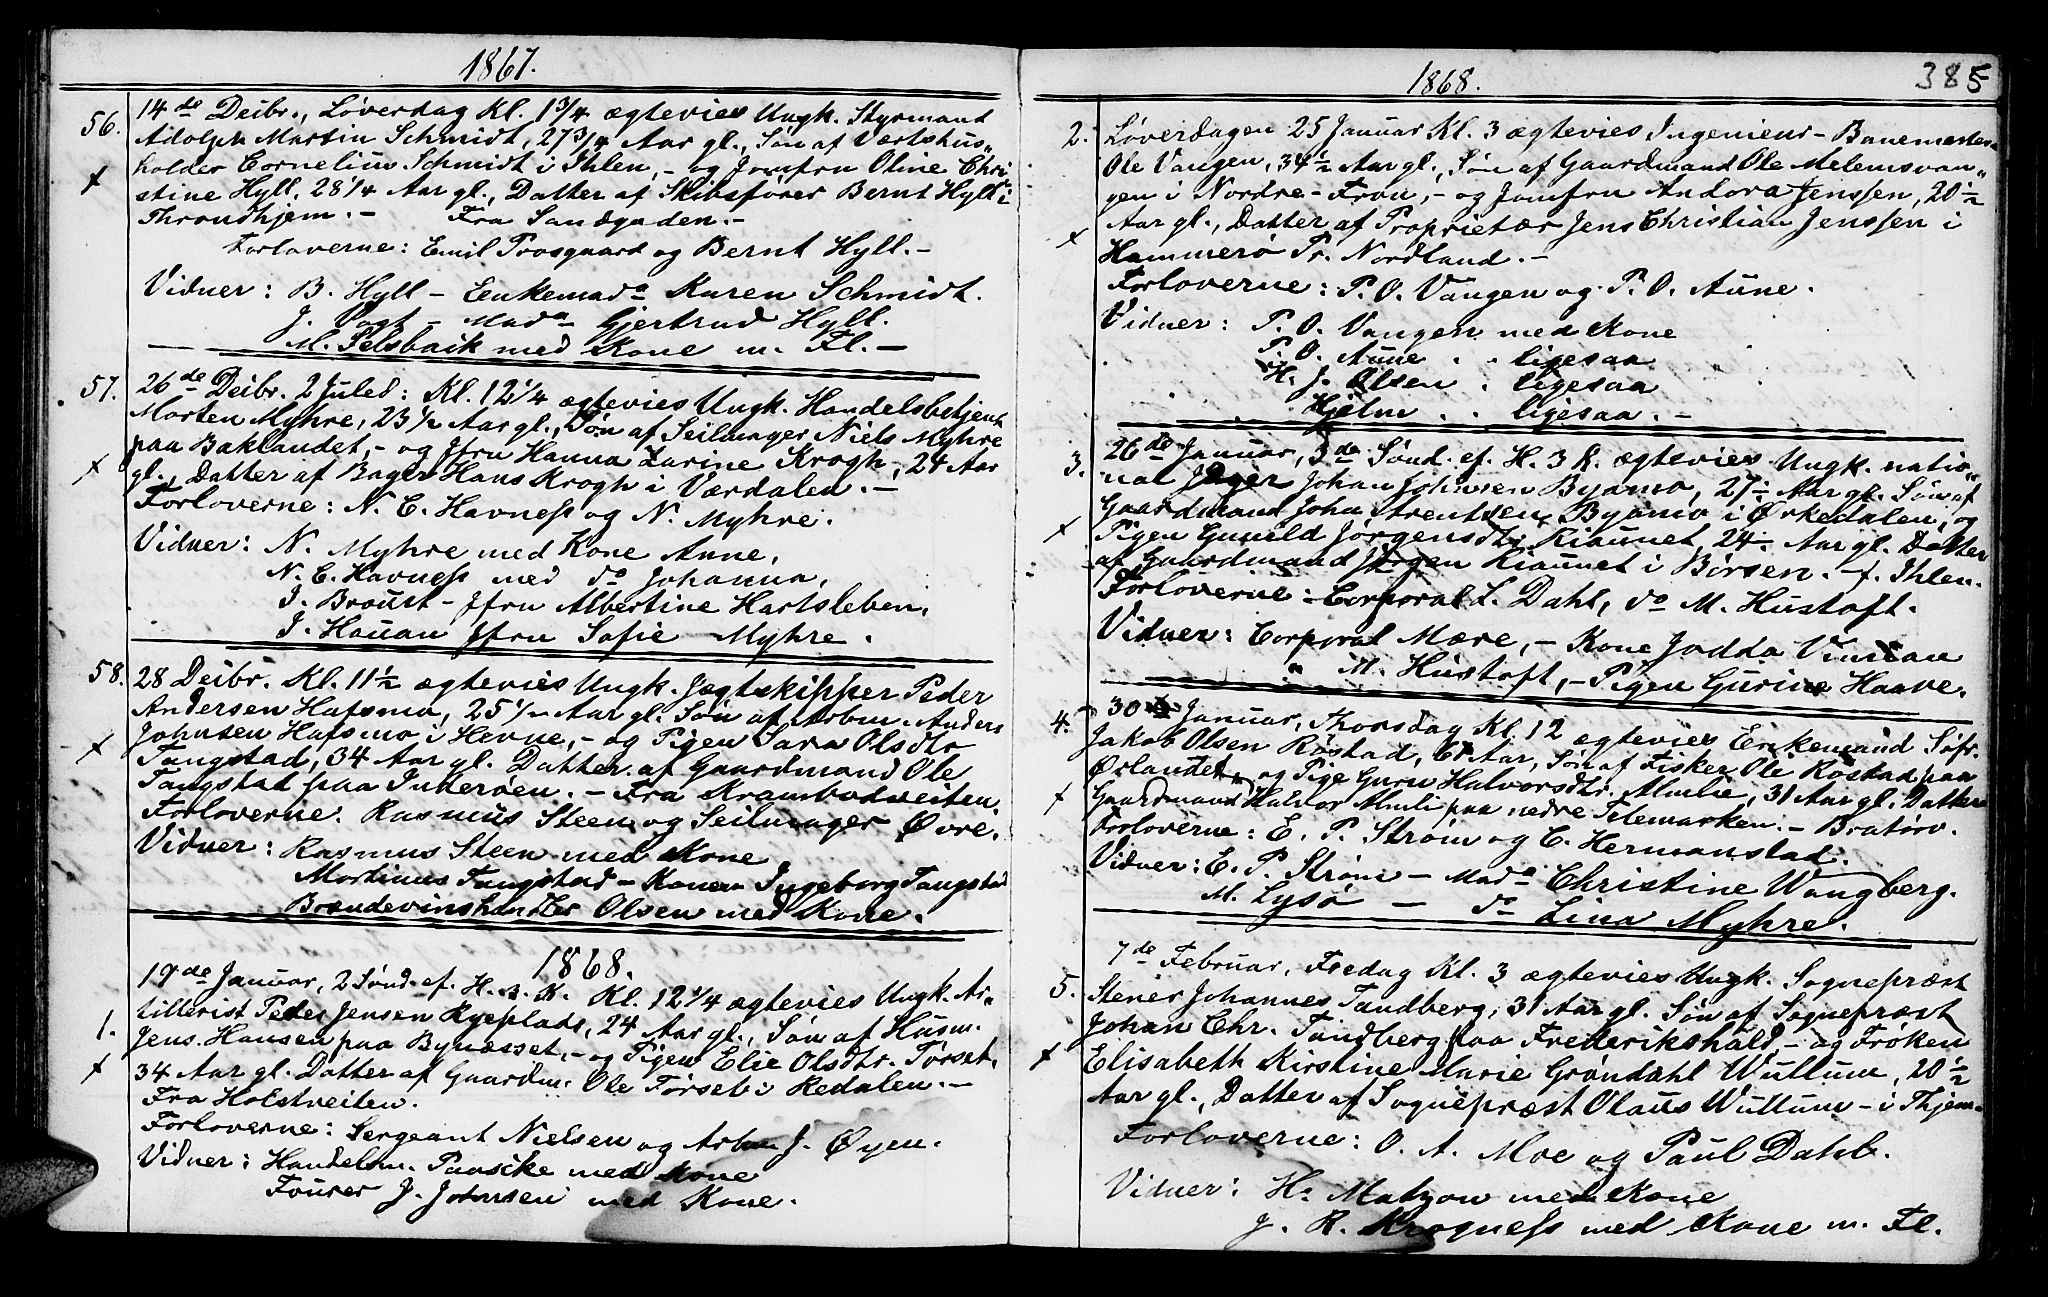 1867.
56. 14de Decbr., Løverdag Kl. 1 3/4 ægtevies Ungk. Styrmand
Adolph Martin Schmidt, 27 3/4 Aar gl., Søn af Værtshus„
holder Cornelius Schmidt i Ihlen, - og Jomfru Oline Chri
stine Hyll, 28 1/4 Aar gl., Datter af Skibsfører Bernt Hyll i
Throndhjem. - Fra Sandgaden. -
Forloverne: Emil Trosgaard og Bernt Hyll. -
Vidner: B. Hyll - Enkemada Karen Schmidt.
J. Vogt - Mada Gjertrud Hyll.
M. Selsbaik med Kone m. Fl. -
57. 26de Decbr. 2 Juled: Kl. 12 1/4 ægtevies Ungk. Handelsbetjent
Morten Myhre, 23 1/2 Aar gl., Søn af Seilmager Niels Myhre
paa Baklandet, - og Jfru Hanna Larine Krogh, 24 Aar
gl., Datter af Bager Hans Krogh i Værdalen. -
Forloverne: N. C. Havness og N. Myhre.
Vidner: N. Myhre med Kone Anne,
N. C. Havness med do Johanna,
J. Broust - Jfru Albertine Hartsleben,
J. Hauan Jfru Sofie Myhre.
58. 28 Decbr. Kl. 11 1/2 ægtevies Ungk. Jægtskipper Peder
Andersen Hafsmo, 25 1/2 Aar gl. Søn af Arbm. Anders
Johnsen Hafsmo i Hevne, - og Pigen Sara Olsdtr
Tangstad, 34 Aar gl. Datter af Gaardmand Ole
Tangstad paa Inderøen. - Fra Krambodveiten
Forloverne. Rasmus Steen og Seilmager Øvre.
Vidner: Rasmus Steen med Kone
Martinus Tangstad - Konen Ingeborg Tangstad
Brændevinshandler Olsen med Kone.
1868.
1. 19de Januar, 2 Sønd. ef. H. 3 K. Kl. 12 1/4 ægtevies Ungk. Ar„
tillerist Peder Jensen Ryeplads, 24 Aar gl., Søn af Husm.
Jens Hansen paa Bynæsset, - og Pigen Elie Olsdtr. Tørset,
34 Aar gl. Datter af Gaardm. Ole Tørset i Redalen. -
Fra Holstveiten.
Forloverne: Sergeant Nielsen og Arbm J. Øyen.
Vidner: Handelsm. Paascke med Kone
Fourer J. Johnsen med Kone.
1868. 385
2. Løverdagen 25 Januar Kl. 3 ægtevies Ingenieur - Banemester
Ole Vangen, 34 1/2 Aar gl., Søn af Gaardmand Ole Melemsvan„
gen i Nordre - Fron, - og Jomfru Andora Jenssen, 20 1/2
Aar gl., Datter af Proprietær Jens Christian Jenssen i
Hammerø Pr. Nordland. -
Forloverne: P. O. Vangen og P. O. Aune.
Vidner: P. O. Vangen med Kone
P. O. Aune . . ligesaa
H. J. Olsen . ligesaa
Hjelm . . ligesaa. -
3. 26de Januar, 3de Sønd. ef. H. 3 K. ægtevies Ungk. natio„
nal Jæger Johan Johnsen Byamo, 27 1/2 Aar gl. Søn af
Gaardmand John Arentsen Byamo i Ørkedalen, og
Pigen Gunild Jørgensdtr. Kiaunet, 24 1/2 Aar gl. Datter
af Gaardmand Jørgen Kiaunet i Børsen. - f. Ihlen.
Forloverne: Corporal L. Dahl, do M. Hustoft.
Vidner: Corporal Mære, - Kone Jodda Vinsian
" M. Hustoft, - Pigen Gurine Haave.
4. 30 Januar, Thorsdag Kl. 12 ægtevies Enkemand Søfr.
Jakob Olsen Røstad, 61 Aar, Søn af Fisker Ole Røstad paa
Ørlandet, og Pige Gurn Halvorsdtr. Mulie, 31 Aar gl. Datter
Gaardmand Halvor Mulie paa nedre Telemarken. - Bratørv.
Forloverne: E. P. Strøm og C. Hermanstad.
Vidner: E. P. Strøm - Mada Christine Wangberg.
M. Lysø - do Lina Myhre.
5. 7de Februar, Fredag Kl. 3 ægtevies Ungk. Sognepræst
Stener Johannes Tandberg, 31 Aar gl. Søn af Sognepræst
Johan Chr. Tandberg paa Frederikshald - og Frøken
Elisabeth Kirstine Marie Grøndahl Wullum, 20 1/2
Aar gl., Datter af Sognepræst Olaus Wullum - i Thjem.
Forloverne: O. A. Moe og Paul Dahl.
Vidner: H. Matzow med Kone
J. R. Krogness med Kone m. Fl.